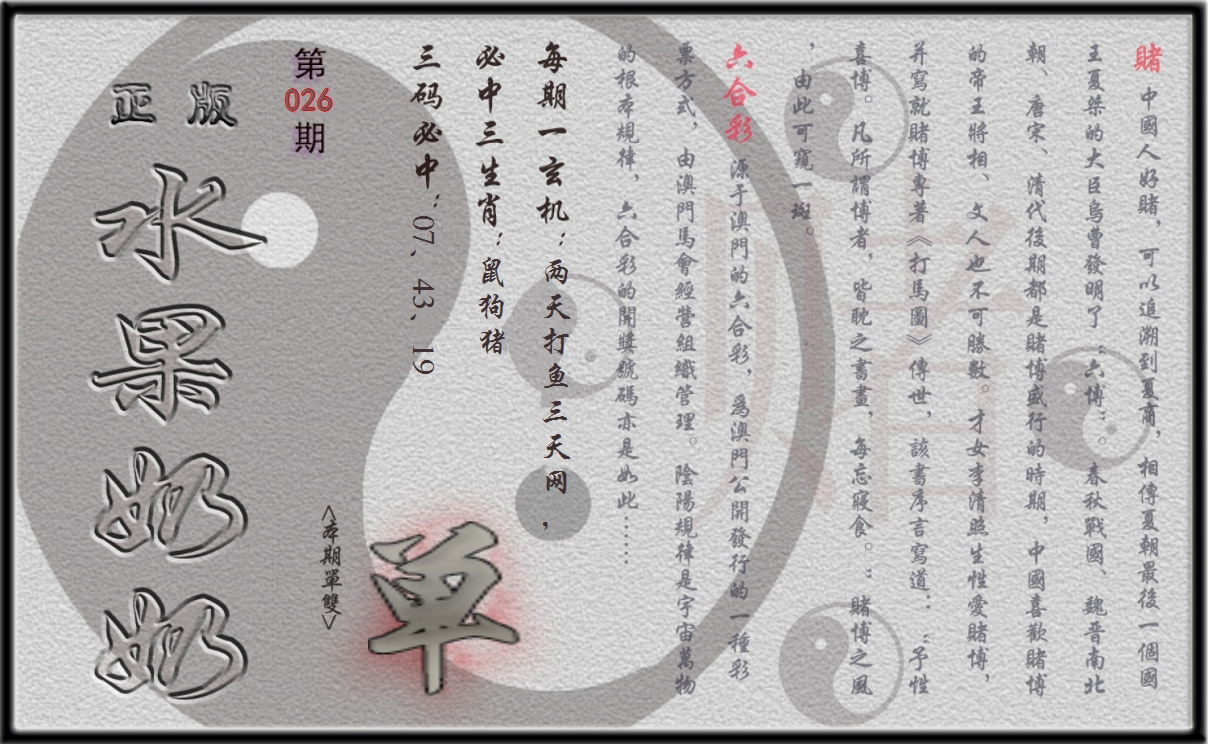 賭 中國人好賭，可以追溯到夏商，相傳夏朝最後一個國
王夏桀的大臣烏曹發明了“六博”。春秋戰國、魏晉南北
朝、唐宋、清代後期都是賭博盛行的時期，中國喜歡賭博
的帝王將相、文人也不可勝數。才女李清照生性愛賭博，
并寫就賭博專著《打馬圖》傳世，該書序言寫道：“予性
喜博。凡所謂博者，皆耽之晝，每忘寢食。”賭博之風
，由此可窺一斑。
六合彩 源于澳門的六合彩，為澳門公開發行的一種彩
票方式，由澳門馬會經營組織管理。陰陽規律是宇宙萬物
的根本規律，六合彩的開獎號碼亦是如此……
每期一玄机：两天打鱼三天网，
必中三生肖：鼠狗猪
三码必中：07、43、19
单
<本期單雙>
第
026
期
正版
水果奶奶